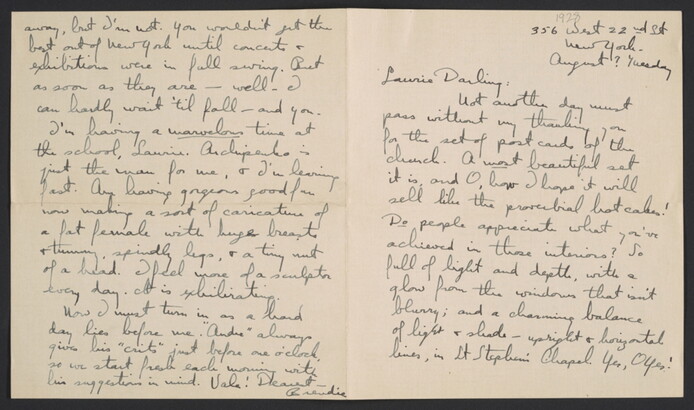 1928
356 West 22nd St
New York.
August ? Tuesday
Laurie Darling:
Not another day must
pass without my thanking you
for the set of post cards of the
church. A most beautiful set
it is, and O, how I hope it will
sell like the proverbial hotcakes!
Do people appreciate what you've
achieved in those interiors? So
full of light and depth, with a
glow from the windows that isn't
blurry; and a charming balance
of light & shade – upright & horizontal
lines, in St Stephen's Chapel. Yes, O Yes!
away, but I'm not. You wouldn't get the
best out of New York until concerts &
exhibitions were in full swing. But
as soon as they are – well – I
can hardly wait 'til fall – and you.
I'm having a marvelous time at
the school, Laurie. Archipenko is
just the man for me, & I'm learning
fast. Am having gorgeous good fun
now making a sort of caricature of
a fat female with huge breasts
& tummy, spindly legs, & a tiny nut
of a head. I feel more of a sculptor
every day. It is exhilerating.
Now I must turn in as a hard
day lies before me. "Andre" always
gives his "crits" just before one o'clock,
so we start fresh each morning with
his suggestions in mind. Vale! Dearest